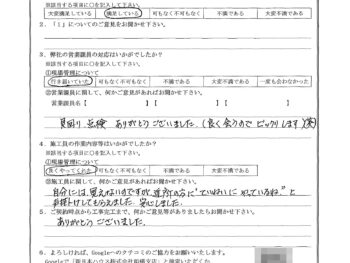 ※該当する項目に○を記入して下さい。
大変満足している 満足している 可も不可も不可もなく 不満である 大変不満である
2．「1」についてのご意見をお聞かせ下さい。
3．弊社の営業員の対応はいかがでしたか？
※該当する項目に○を記入して下さい。
①現場管理について
行き届いていた 可もなく不可もなく 不満である 大変不満である 一度も会わなかった
②営業員に関して、何かご意見があればお聞かせ下さい。
営業員名【 】【 】【 】
見回り 点検 ありがとうございました。(良く会うので ビックリします(笑)
4．施工員の作業内容等はいかがでしたか？
※該当する項目に○を記入して下さい。
①現場管理について
良くやってくれた 可もなく不可もなく 不満である 大変不満である
②施工員に関して、何かご意見があればお聞かせ下さい。
自分には見えないのですが、近所の方に"ていねいに やっているね"と
声掛けしてもらえました。安心しました。
5．ご契約時点から工事完工まで、何かご意見等がありましたらお聞かせ下さい。
ありがとうございました。
6．よろしければ、Googleへのクチコミのご協力をお願いいたします。